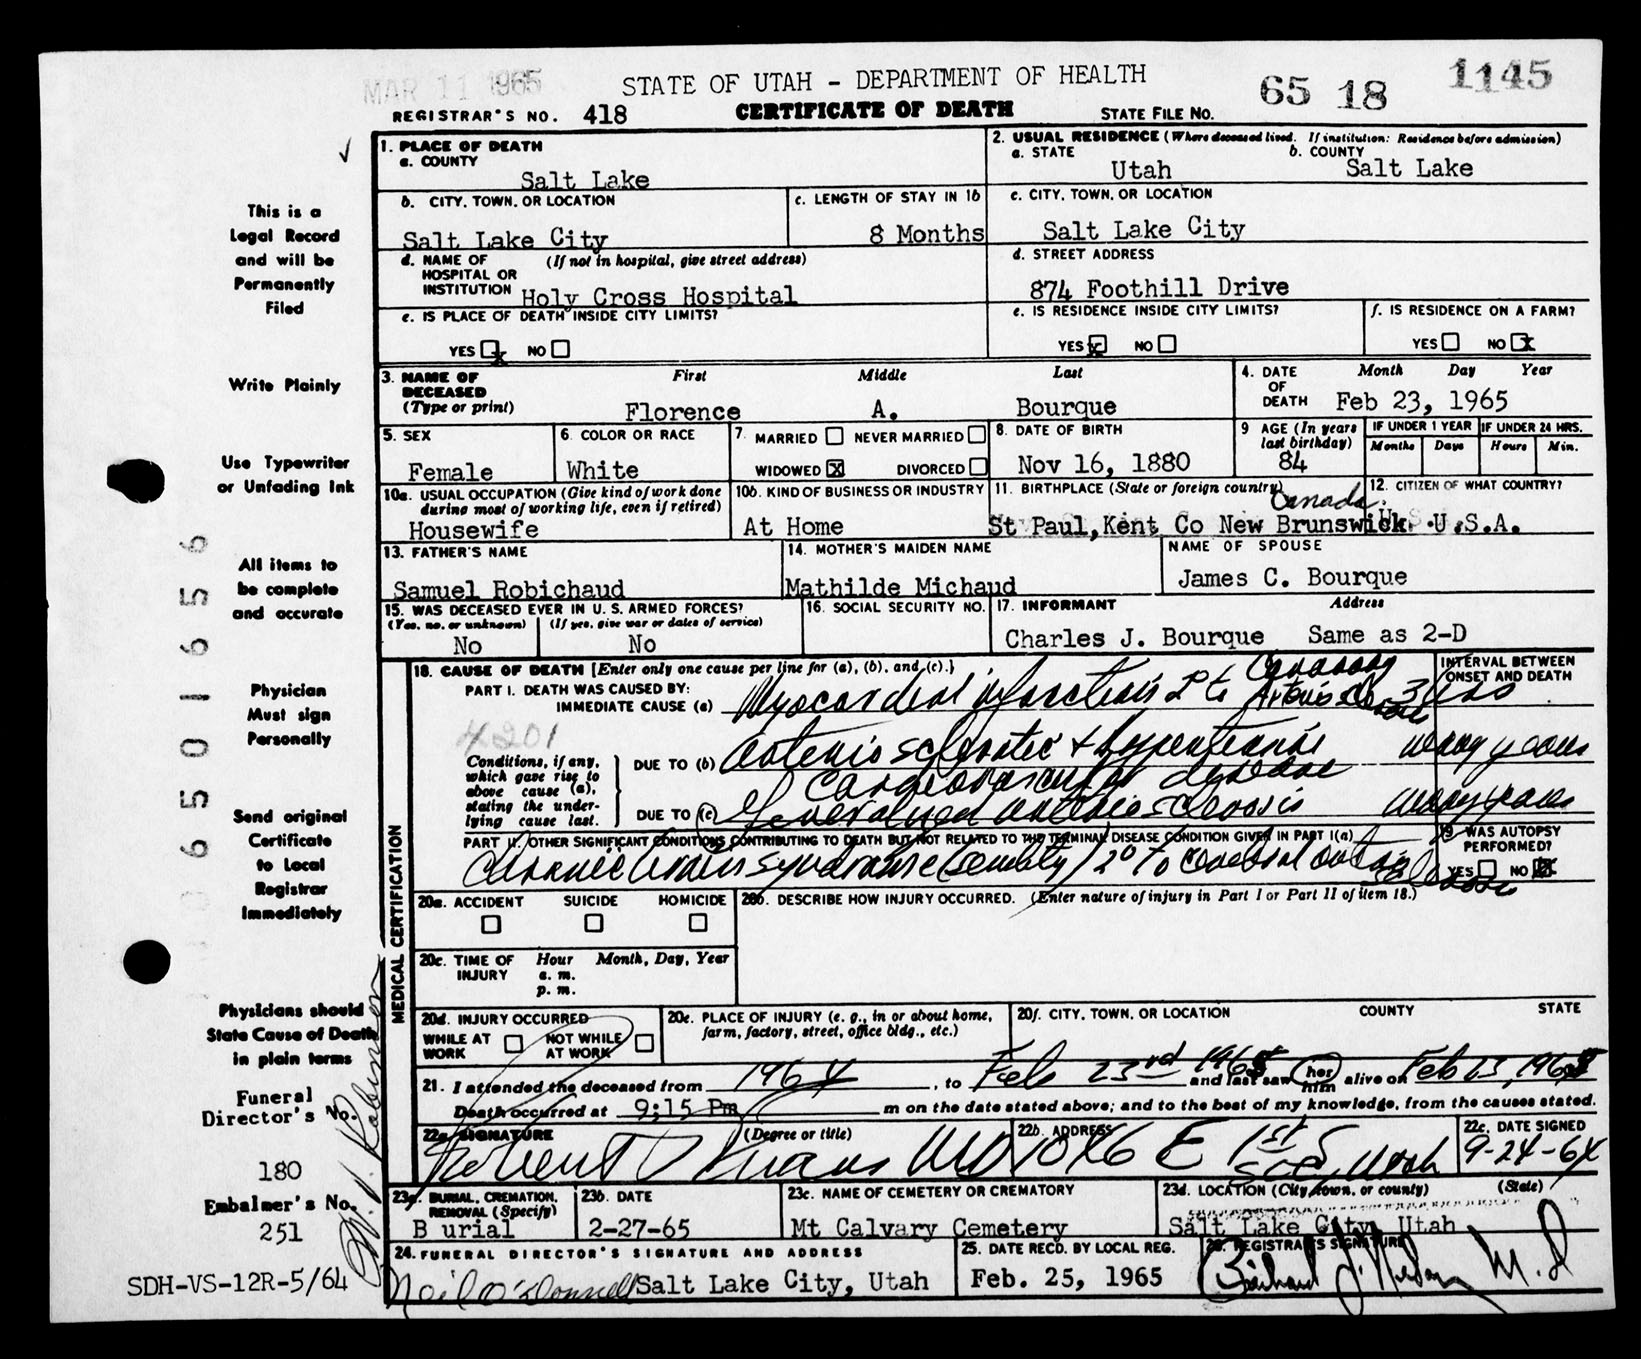 MAR 11 1965
STATE OF UTAH - DEPARTMENT OF HEALTH
65 18 1145
REGISTRAR'S NO. 418 CERTIFICATE OF DEATH STATE FILE NO.
This is a
Legal Record
and will be
Permanently
Filed
Write Plainly
Use Typewriter
or Unfading Ink
All items to
be complete
and accurate
Physician
Must sign
Personally
Send original
Certificate
to Local
Registrar
Immediately
Physicians should
State Cause of Death
in plain terms
Funeral
Director's No.
180
Embalmer's No.
251
SDH-VS-12R-5/64
1. PLACE OF DEATH
a. COUNTY
Salt Lake
2. USUAL RESIDENCE (Where deceased lived. If institution: Residence before admission)
a. STATE b. COUNTY
Utah Salt Lake
b. CITY, TOWN, OR LOCATION
Salt Lake City
c. LENGTH OF STAY IN 1b
8 Months
c. CITY, TOWN, OR LOCATION
Salt Lake City
d. NAME OF (If not in hospital, give street address)
HOSPITAL OR
INSTITUTION Holy Cross Hospital
d. STREET ADDRESS
874 Foothill Drive
e. IS PLACE OF DEATH INSIDE CITY LIMITS?
YES x NO
e. IS RESIDENCE INSIDE CITY LIMITS?
YES x NO
f. IS RESIDENCE ON A FARM?
YES NO x
3. NAME OF First Middle Last
DECEASED
(Type or print) Florence A. Bourque
4. DATE Month Day Year
OF
DEATH Feb 23, 1965
5. SEX
Female
6. COLOR OR RACE
White
7. MARRIED NEVER MARRIED
WIDOWED X DIVORCED
8. DATE OF BIRTH
Nov 16, 1880
9 AGE (In years
last birthday)
84
IF UNDER 1 YEAR IF UNDER 24 HRS.
Months Days Hours Min.
10a. USUAL OCCUPATION (Give kind of work done
during most of working life, even if retired)
Housewife
10b. KIND OF BUSINESS OR INDUSTRY
At Home
11. BIRTHPLACE (State or foreign country)
Canada
St Paul, Kent Co New Brunswick.
12. CITIZEN OF WHAT COUNTRY?
U.S.A.
13. FATHER'S NAME
Samuel Robichaud
14. MOTHER'S MAIDEN NAME
Mathilde Michaud
NAME OF SPOUSE
James C. Bourque
15. WAS DECEASED EVER IN U. S. ARMED FORCES?
(Yes, no, or unknown) (If yes, give war or dates of service)
No No
16. SOCIAL SECURITY NO.
17. INFORMANT Address
Charles J. Bourque Same as 2-D
18. CAUSE OF DEATH [Enter only one cause per line for (a), (b), and (c).]
INTERVAL BETWEEN
ONSET AND DEATH
PART I. DEATH WAS CAUSED BY:
IMMEDIATE CAUSE (a) Myocardial infarction
4201
Conditions, if any,
which gave rise to
above cause (a),
stating the under-
lying cause last.
DUE TO (b) arteriosclerotic + hypertensive many years
cardiovascular disease
DUE TO (c) Generalized arteriosclerosis many years
PART II. OTHER SIGNIFICANT CONDITIONS CONTRIBUTING TO DEATH BUT NOT RELATED TO THE TERMINAL DISEASE CONDITION GIVEN IN PART I(a)
Chronic brain syndrome (senility) 2° to cerebral
19 WAS AUTOPSY
PERFORMED?
YES NO X
MEDICAL CERTIFICATION
20a. ACCIDENT SUICIDE HOMICIDE
20b. DESCRIBE HOW INJURY OCCURRED. (Enter nature of injury in Part I or Part II of item 18.)
20c. TIME OF Hour Month, Day, Year
INJURY a. m.
p. m.
20d. INJURY OCCURRED
WHILE AT NOT WHILE
WORK AT WORK
20e. PLACE OF INJURY (e. g., in or about home,
farm, factory, street, office bldg., etc.)
20f. CITY, TOWN, OR LOCATION COUNTY STATE
21. I attended the deceased from 1964, to Feb 23rd 1965 and last saw her him alive on Feb 23, 1965
Death occurred at 9:15 Pm m on the date stated above; and to the best of my knowledge, from the causes stated.
22a SIGNATURE (Degree or title) 22b. ADDRESS 22c. DATE SIGNED
MD 1046 E 1st S 9-24-64
SLC, Utah
23a. BURIAL, CREMATION,
REMOVAL (Specify)
B urial
23b. DATE
2-27-65
23c. NAME OF CEMETERY OR CREMATORY
Mt Calvary Cemetery
23d. LOCATION (City, town, or county) (State)
Salt Lake City, Utah
24. FUNERAL DIRECTOR'S SIGNATURE AND ADDRESS
Neil O'Donnell Salt Lake City, Utah
25. DATE RECD. BY LOCAL REG.
Feb. 25, 1965
26. REGISTRAR'S SIGNATURE
M.D